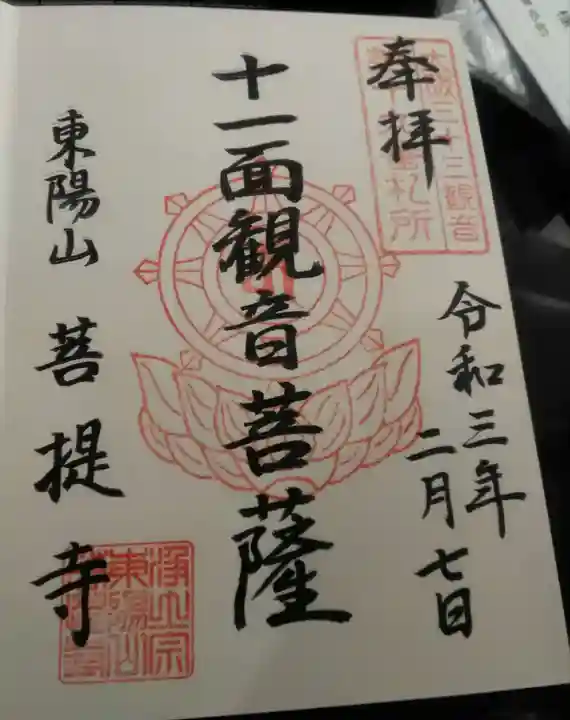 奉拝
大坂三十三観音
札所
令和三年
二月七日
十一面観音菩薩
東陽山
菩提寺
浄土宗
東陽山
菩提寺